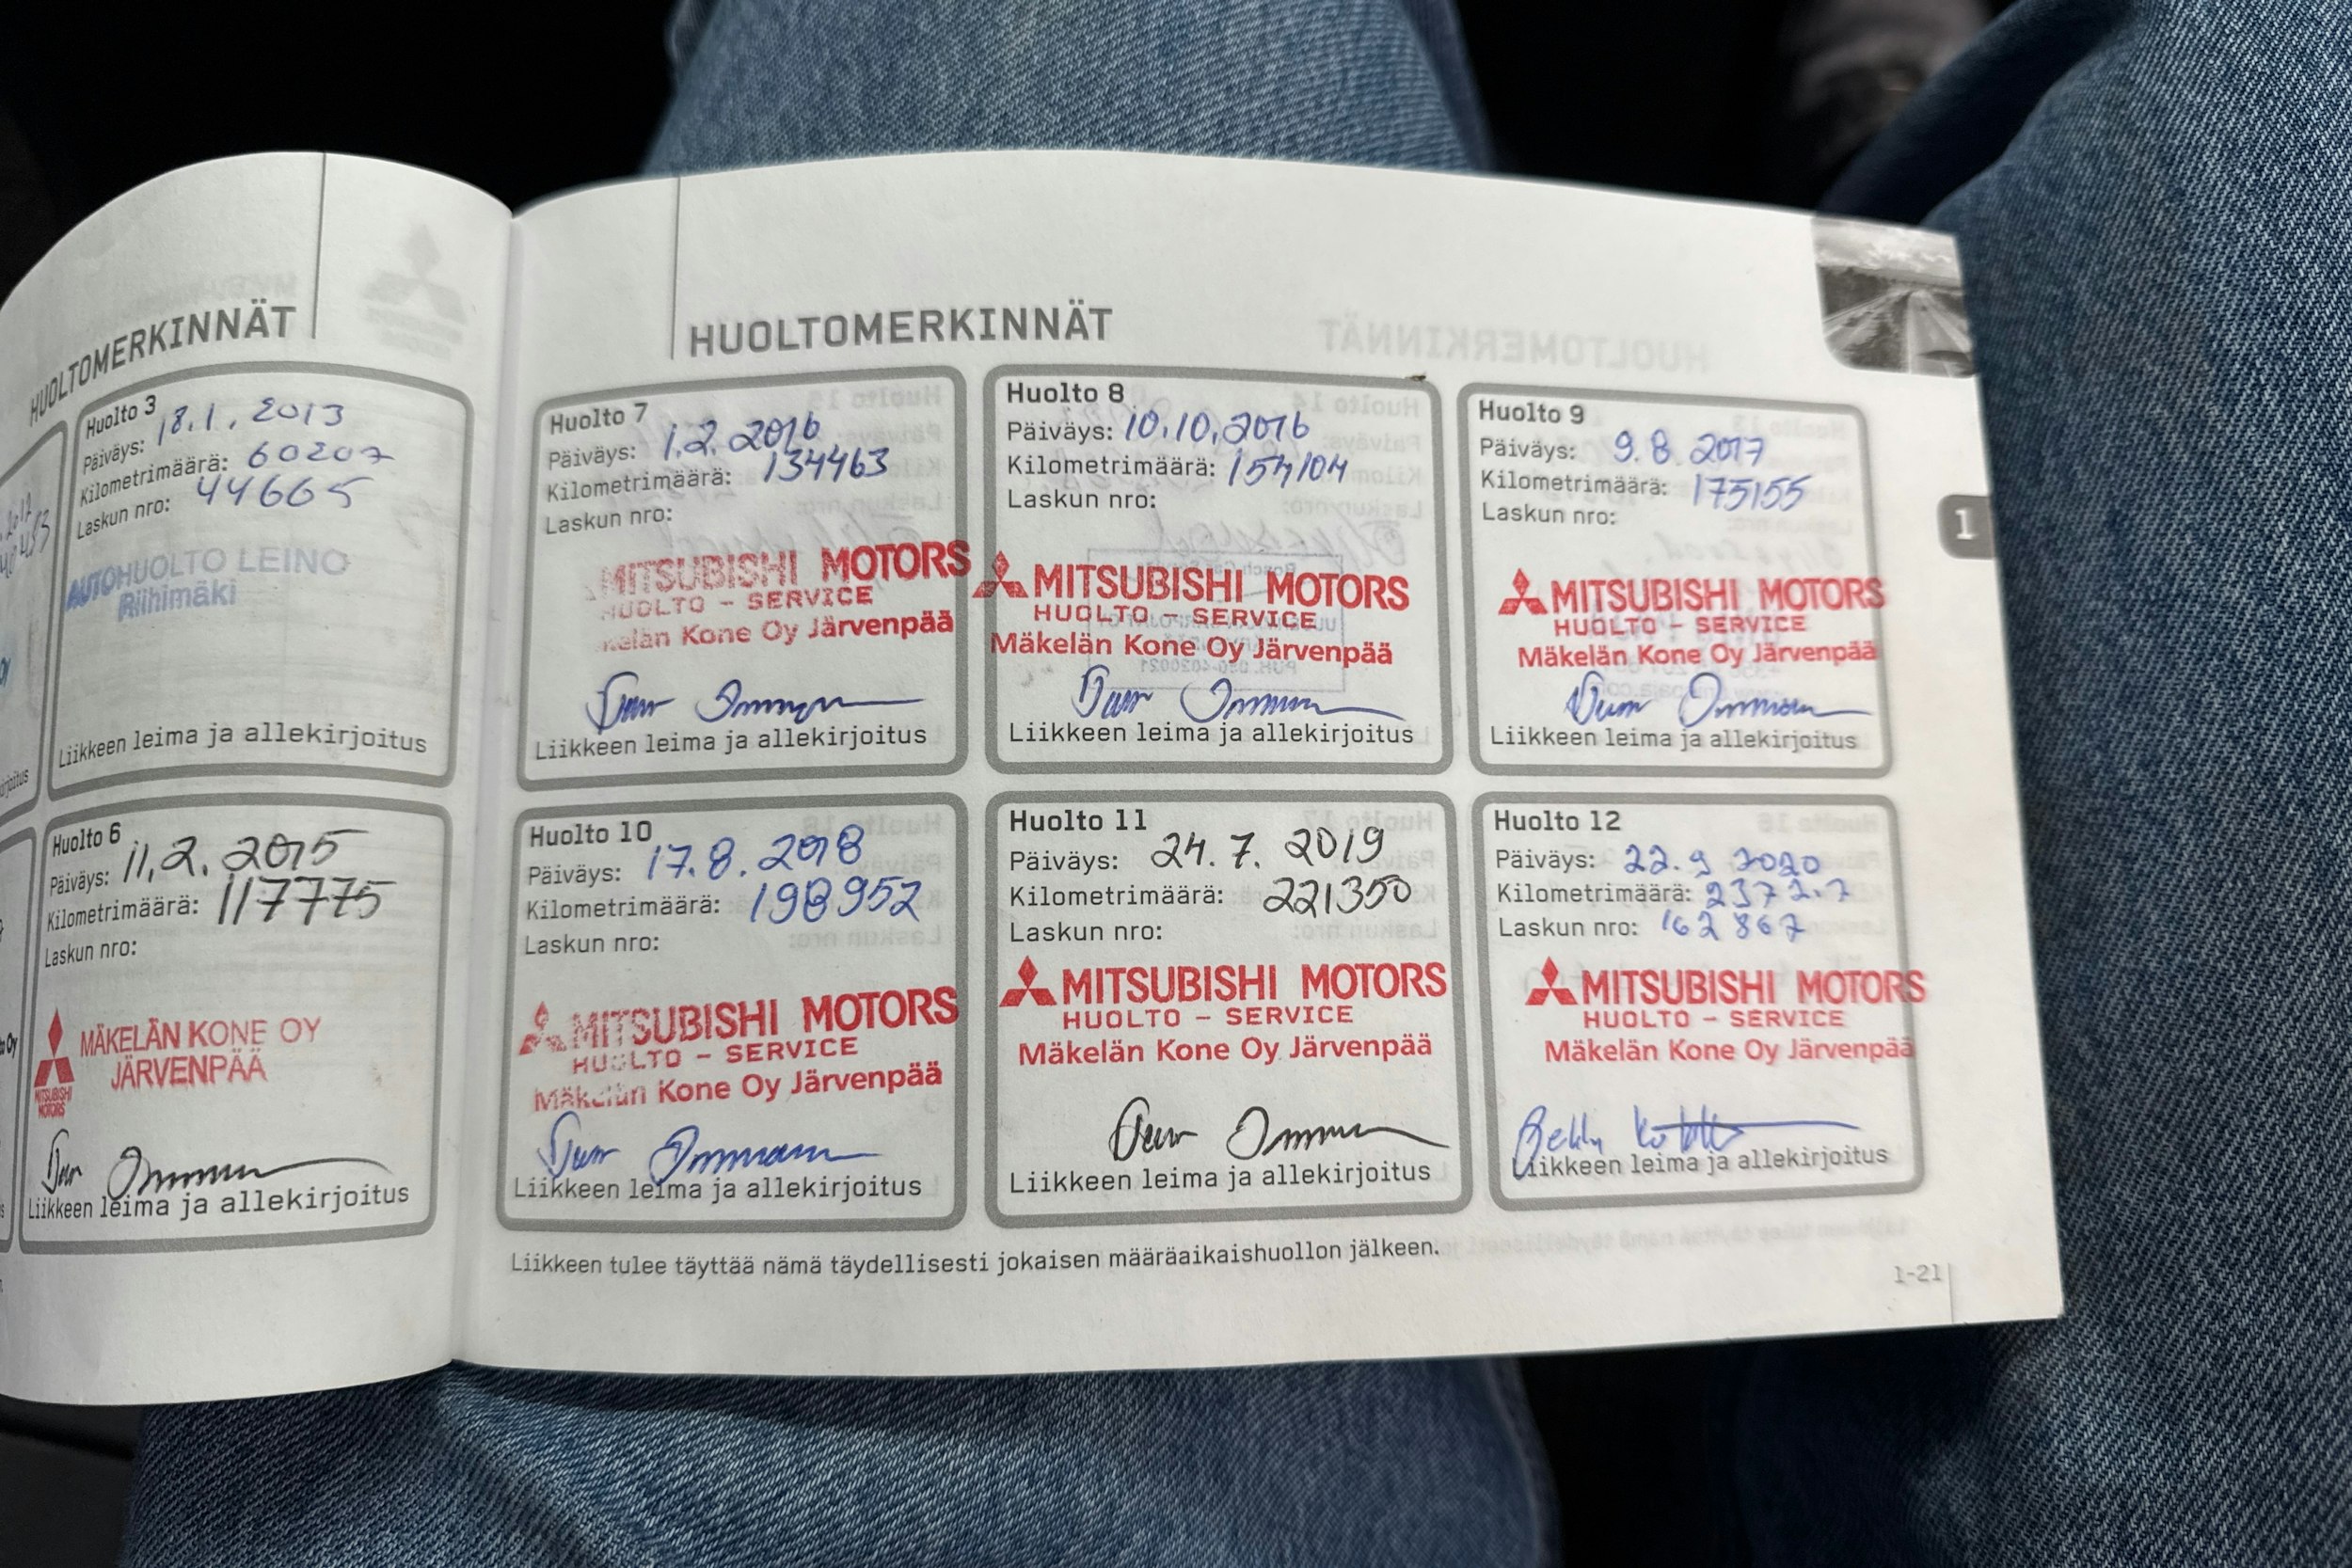 HUOLTOMERKINNÄT
Huolto 3
Päiväys: 18.1.2013
Kilometrimäärä: 60207
Laskun nro: 44665
AUTOHUOLTO LEINO
Riihimäki
Liikkeen leima ja allekirjoitus
Huolto 6
Päiväys: 11.2.2015
Kilometrimäärä: 117775
Laskun nro:
MÄKELÄN KONE OY
JÄRVENPÄÄ
MITSUBISHI
MOTORS
Liikkeen leima ja allekirjoitus
HUOLTOMERKINNÄT
Huolto 7
Päiväys: 1.2.2016
Kilometrimäärä: 134463
Laskun nro:
MITSUBISHI MOTORS
HUOLTO - SERVICE
Mäkelän Kone Oy Järvenpää
Liikkeen leima ja allekirjoitus
Huolto 8
Päiväys: 10.10.2016
Kilometrimäärä: 154104
Laskun nro:
MITSUBISHI MOTORS
HUOLTO - SERVICE
Mäkelän Kone Oy Järvenpää
Liikkeen leima ja allekirjoitus
Huolto 9
Päiväys: 9.8.2017
Kilometrimäärä: 175155
Laskun nro:
MITSUBISHI MOTORS
HUOLTO - SERVICE
Mäkelän Kone Oy Järvenpää
Liikkeen leima ja allekirjoitus
Huolto 10
Päiväys: 17.8.2018
Kilometrimäärä: 198952
Laskun nro:
MITSUBISHI MOTORS
HUOLTO - SERVICE
Mäkelän Kone Oy Järvenpää
Liikkeen leima ja allekirjoitus
Huolto 11
Päiväys: 24.7.2019
Kilometrimäärä: 221350
Laskun nro:
MITSUBISHI MOTORS
HUOLTO - SERVICE
Mäkelän Kone Oy Järvenpää
Liikkeen leima ja allekirjoitus
Huolto 12
Päiväys: 22.9 2020
Kilometrimäärä:
Laskun nro: 162867
MITSUBISHI MOTORS
HUOLTO - SERVICE
Mäkelän Kone Oy Järvenpää
Liikkeen leima ja allekirjoitus
Liikkeen tulee täyttää nämä täydellisesti jokaisen määräaikaishuollon jälkeen.
1-21
1